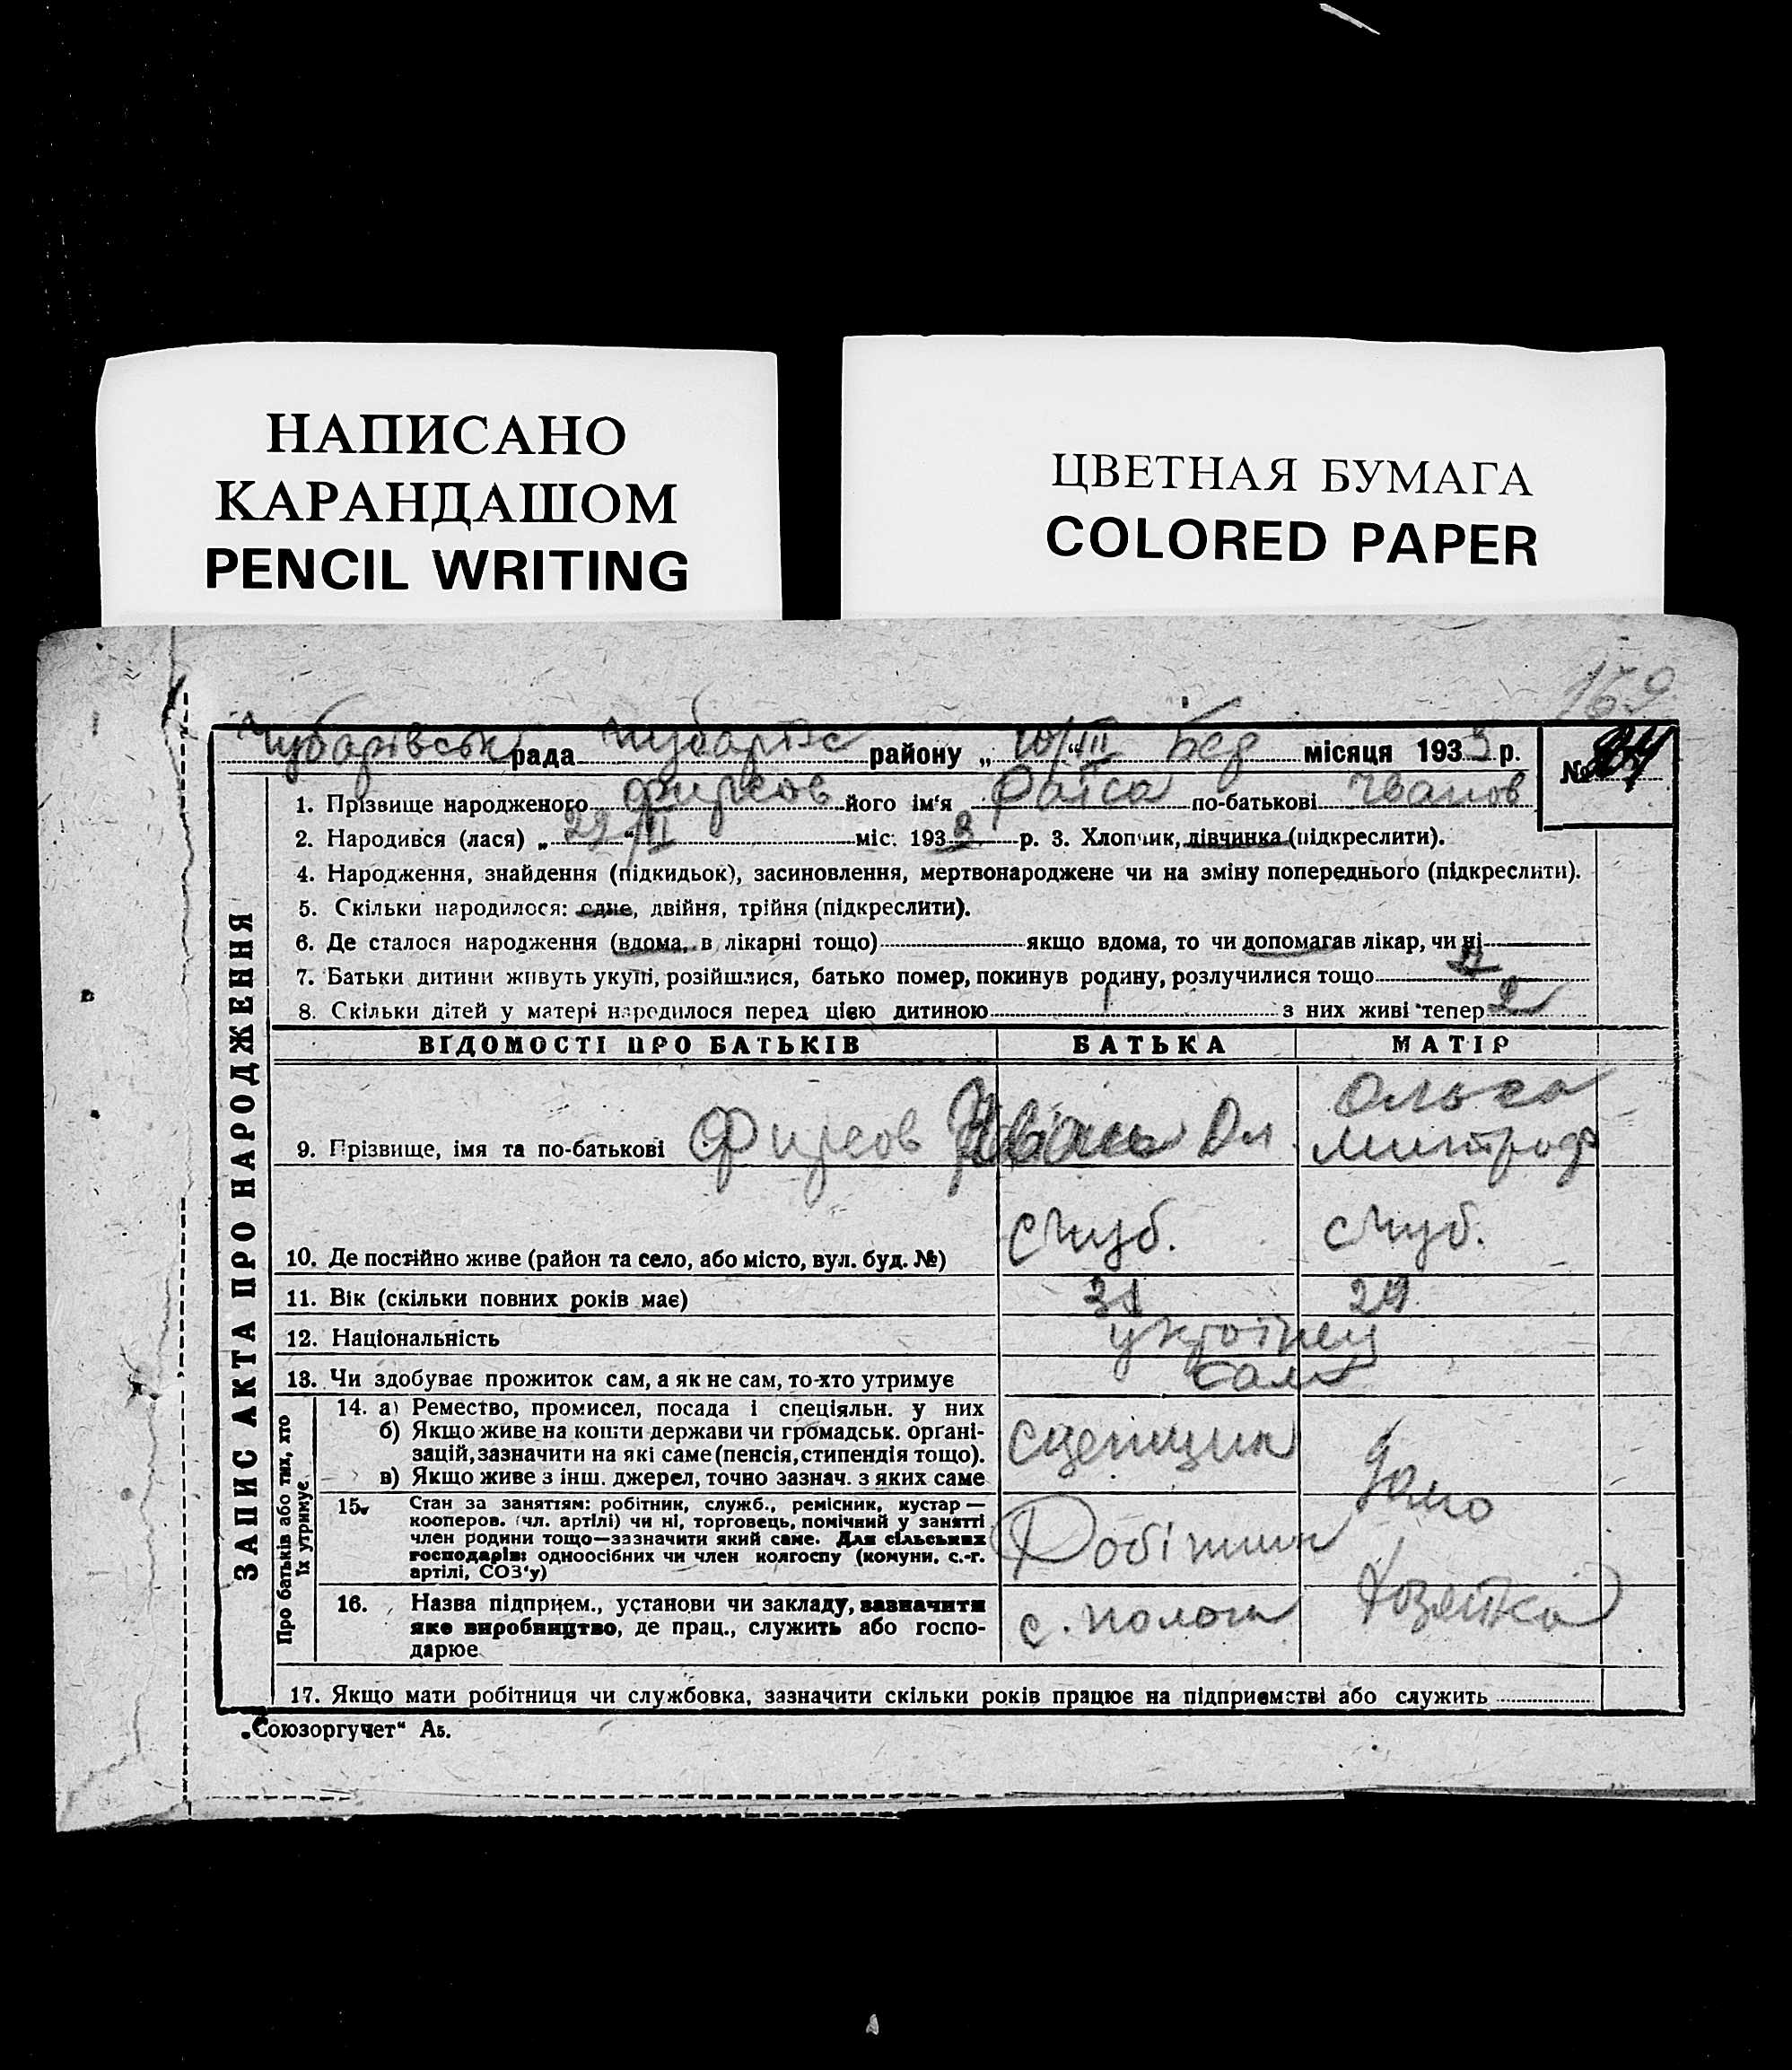 НАПИСАНО
КАРАНДАШОМ
PENCIL WRITING
ЦВЕТНАЯ БУМАГА
COLORED PAPER
159
Чубарівськ рада Чубарівс району „10/III" Бер місяця 1933 р.
№ 84
1. Прізвище народженого Фирсов його ім'я Раїса по-батькові Иванов
2. Народився (лася) „22/II міс. 1933 р. 3. Хлопчик, дівчинка (підкреслити).
4. Народження, знайдення (підкидьок), засиновлення, мертвонароджене чи на зміну попереднього (підкреслити).
5. Скільки народилося: одне, двійня, трійня (підкреслити).
6. Де сталося народження (вдома, в лікарні тощо) якщо вдома, то чи допомагав лікар, чи ні
7. Батьки дитини живуть укупі, розійшлися, батько помер, покинув родину, розлучилися тощо
8. Скільки дітей у матері народилося перед цією дитиною 1 з них живі тепер 2
ВІДОМОСТІ ПРО БАТЬКІВ БАТЬКА МАТІР
9. Прізвище, імя та по-батькові Фирсов Иван Ольга Митроф
10. Де постійно живе (район та село, або місто, вул. буд. №) с Чуб. с Чуб.
11. Вік (скільки повних років має) 31 29
12. Національність украінец
13. Чи здобуває прожиток сам, а як не сам, то-хто утримує сам
14. а) Ремество, промисел, посада і спеціяльн. у них
б) Якщо живе на кошти держави чи громадськ. орґані-
зацій, зазначити на які саме (пенсія, стипендія тощо).
в) Якщо живе з інш. джерел, точно зазнач. з яких саме
сцепщик
Домо
15. Стан за заняттям: робітник, служб., ремісник, кустар —
кооперов. (чл. артілі) чи ні, торговець, помічний у занятті
член родини тощо—зазначити який саме. Для сільських
господарів: одноосібних чи член колгоспу (комуни, с.-г.
артілі, СОЗ'у)
Робітник
Хозяйка
16. Назва підприєм., установи чи закладу, зазначити
яке виробництво, де прац., служить або госпо-
дарює
с. Пологи
17. Якщо мати робітниця чи службовка, зазначити скільки років працює на підприємстві або служить
ЗАПИС АКТА ПРО НАРОДЖЕННЯ
Про батьків або тих, хто
їх утримує
„Союзоргучет" А5.